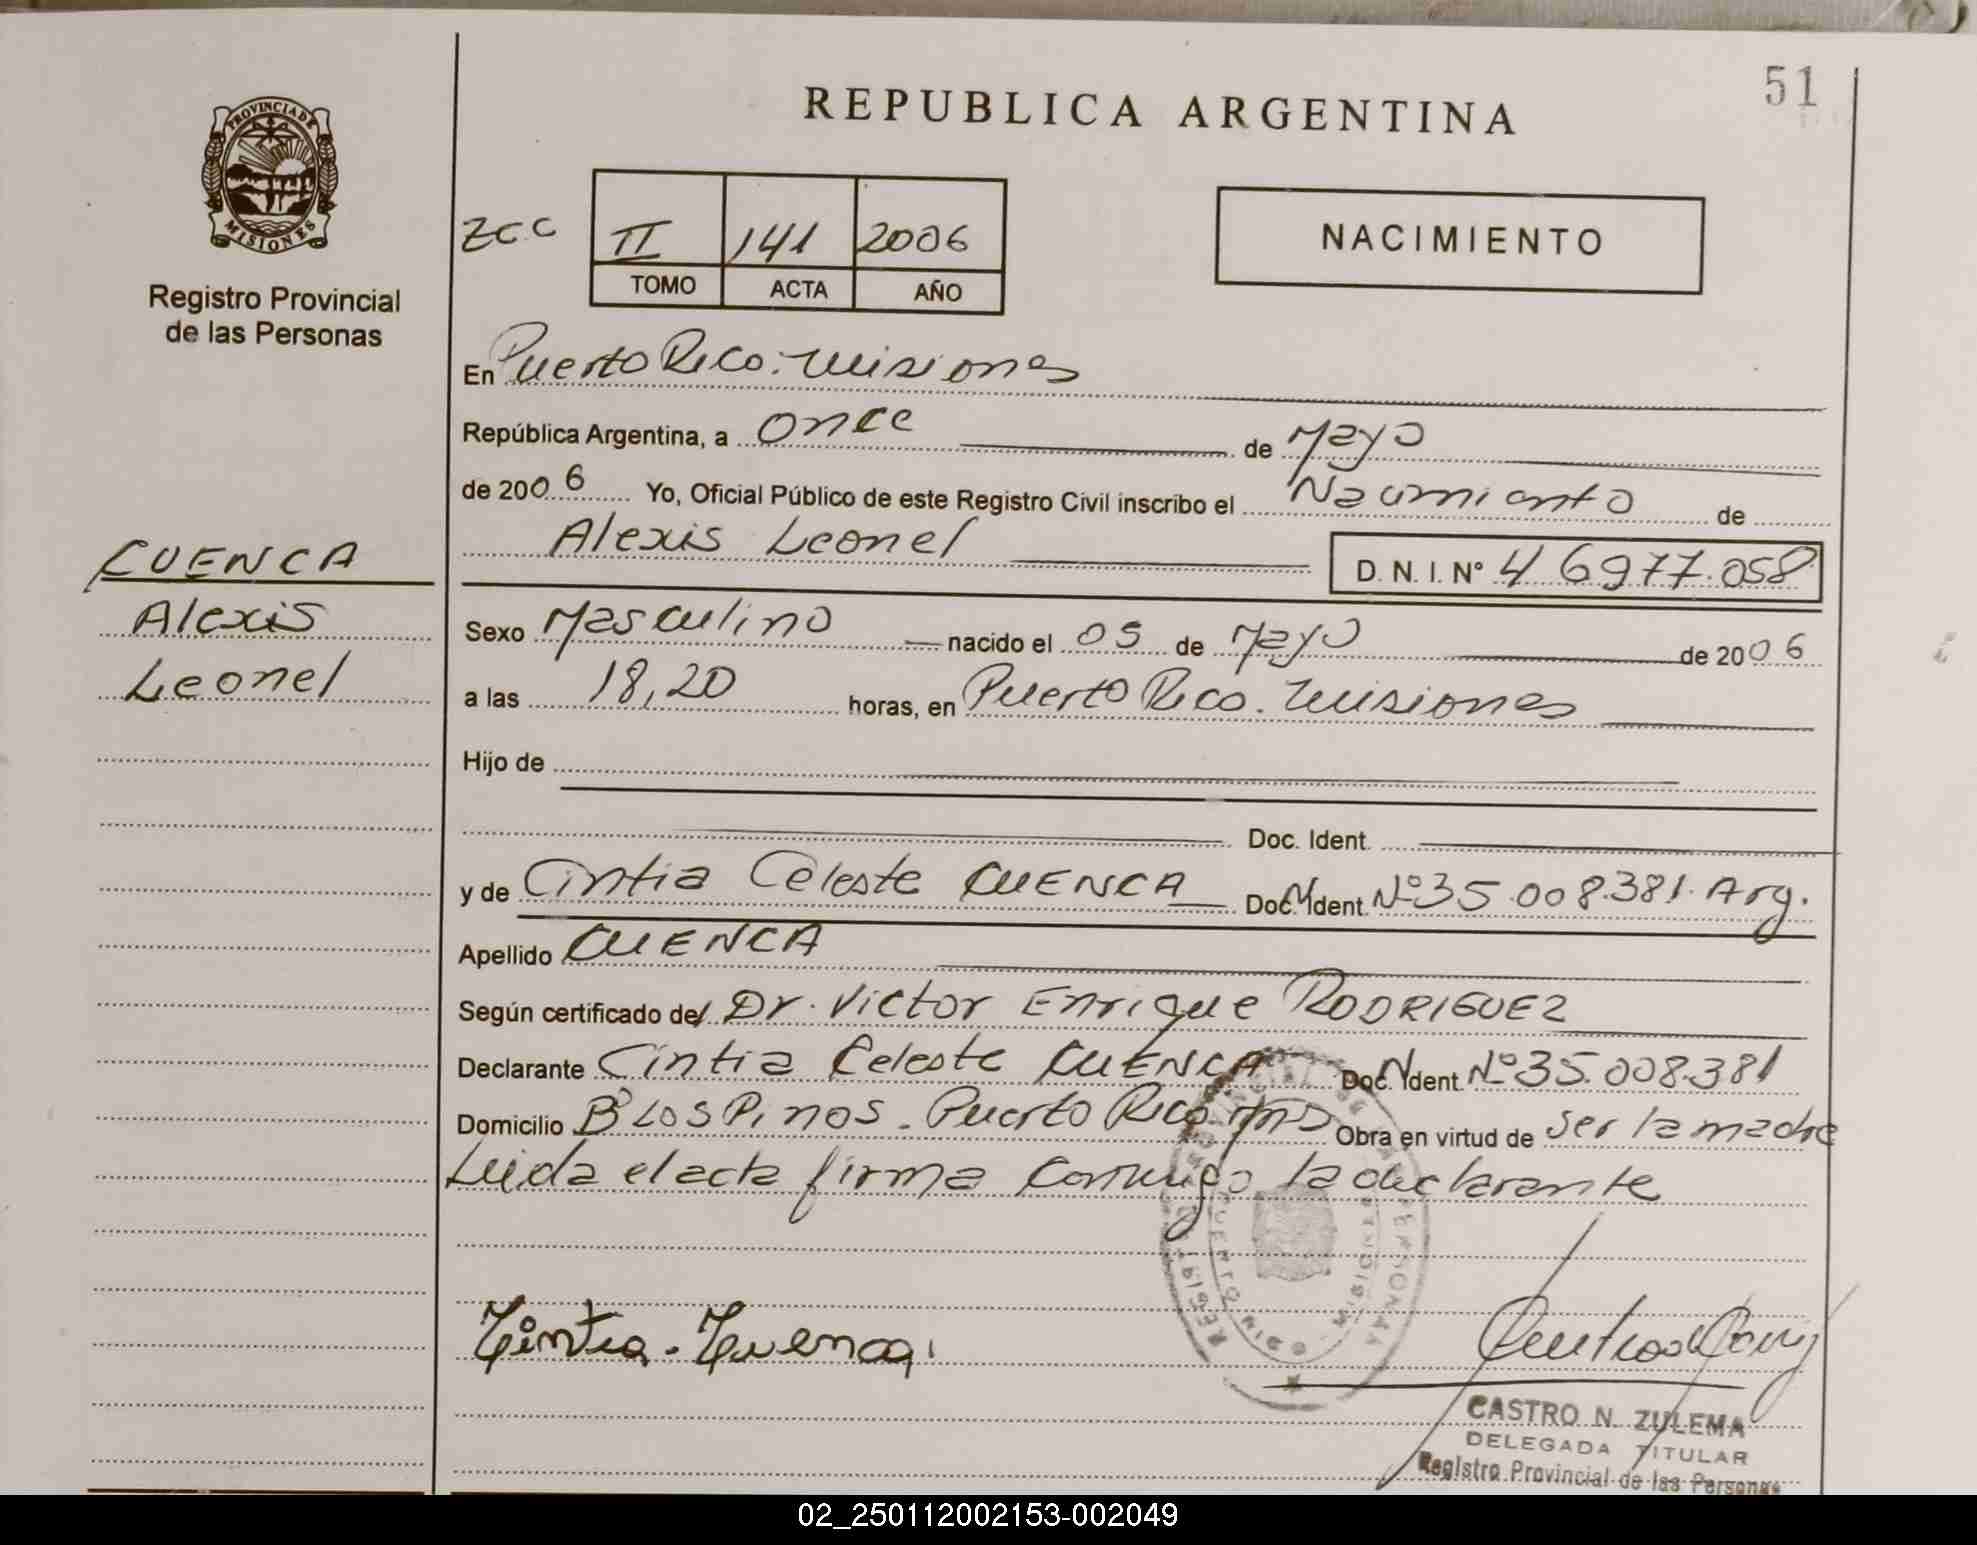 51
REPUBLICA ARGENTINA
PROVINCIA DE
MISIONES
Registro Provincial
de las Personas
ZCC
II 141 2006
TOMO ACTA AÑO
NACIMIENTO
En Puerto Rico. Misiones
República Argentina, a once de Mayo
de 2006 Yo, Oficial Público de este Registro Civil inscribo el Nacimiento de
Alexis Leonel D. N. I. N° 46977.058
CUENCA
Alexis
Leonel
Sexo Masculino nacido el 05 de Mayo de 2006
a las 18,20 horas, en Puerto Rico. Misiones
Hijo de
Doc. Ident.
y de Cintia Celeste CUENCA Doc. Ident. N° 35.008.381. Arg.
Apellido CUENCA
Según certificado del Dr. Victor Enrique RODRIGUEZ
Declarante Cintia Celeste CUENCA Doc. Ident. N° 35.008.381
Domicilio B° LOS Pinos. Puerto Rico Mns Obra en virtud de ser la madre
Leida el acta firma conmigo la declarante
Cintia. Cuenca.
CASTRO N. ZULEMA
DELEGADA TITULAR
Registro Provincial de las Personas
02_250112002153-002049